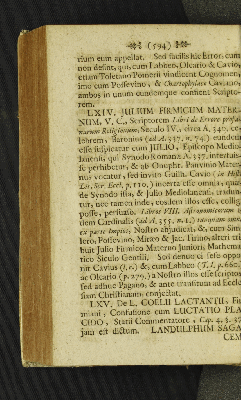 (594)
tium eum appellat. Sed facilis hic Error, cum
non desint, qui, cum Labbeo, Oleario & Cavio,
etiam Toletano Pomerii vindicent Cognomen,
imo cum Possevino, & Chartophylace Caviano,
ambos in unum eundemque confient Scripto-
rem.
LXIV. JULIUM FIRMICUM MATER-
NUM, V. C., Scriptorem Libri de Errore profa-
narum Religionum, Seculo IV., circa A. 340. ce-
lebrem, Baronius (ad A. 337. n. 74) eundem
esse suspicatur cum JULIO, Episcopo Medio-
lanensi, qui Synodo Romanæ A. 337. interfuis-
se perhibetur, & ab Onuphr. Panvinio Mater-
nus vocatur, sed invito Guill. Cavio (in Hist.
Lit. Scr. Eccl. p. 129.) incerta esse omnia, quæ
de Synodo ista, & Julio Mediolanensi, tradun-
tur, nec tamen inde, eosdem illos esse, colligi
posse, persuaso. Libros VIII. Astronomicorum
idem Cardinalis (ad A. 355. n. 1.) tanquam
ex parte impios, Nostro abjudicat, &, cum Sim-
lero, Possevino, Miræo & Jac. Firmo, alteri tri-
buit Julio Firmico Materno Juniori, Mathema-
tico Siculo Gentili. Sed denuo ei sese oppo-
nit Cavius (l. c.) &, cum Labbeo (T. I. p. 660.)
ac Oleario (p. 270.) a Nostro illos esse scriptos,
sed adhuc Pagano, & ante transitum ad Eccle-
siam Christianam, conjectat.
LXV. De L. COELII LACTANTII, Fir-
miani, Confusione cum LUCTATIO PLA-
CIDO, Statii Commentatore, Cap. 4. 3. 36.
jam est dictum. LANDULPHUM SAGA-
CEM